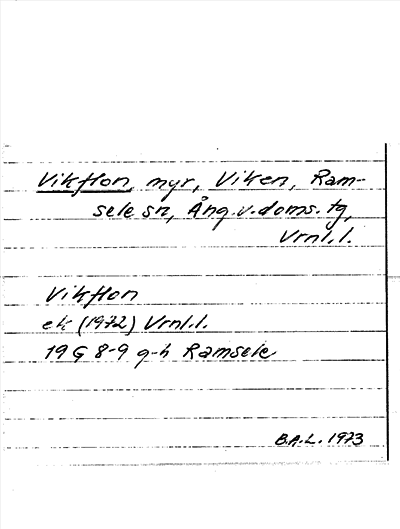 Vikflon, myr, Viken, Ram-
sele sn, Ång.v.doms.tg,
Vrnl.l.
Vikflon
ek (1972) Vrnl.l.
19 G 8-9 g-h Ramsele
B.A.L. 1973